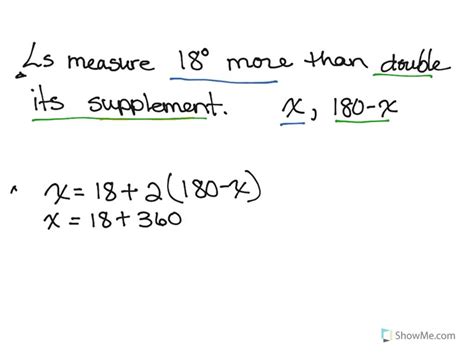 ∠s measure 18° more than double
its supplement. x, 180-x
x = 18 + 2(180-x)
x = 18 + 360
ShowMe.com